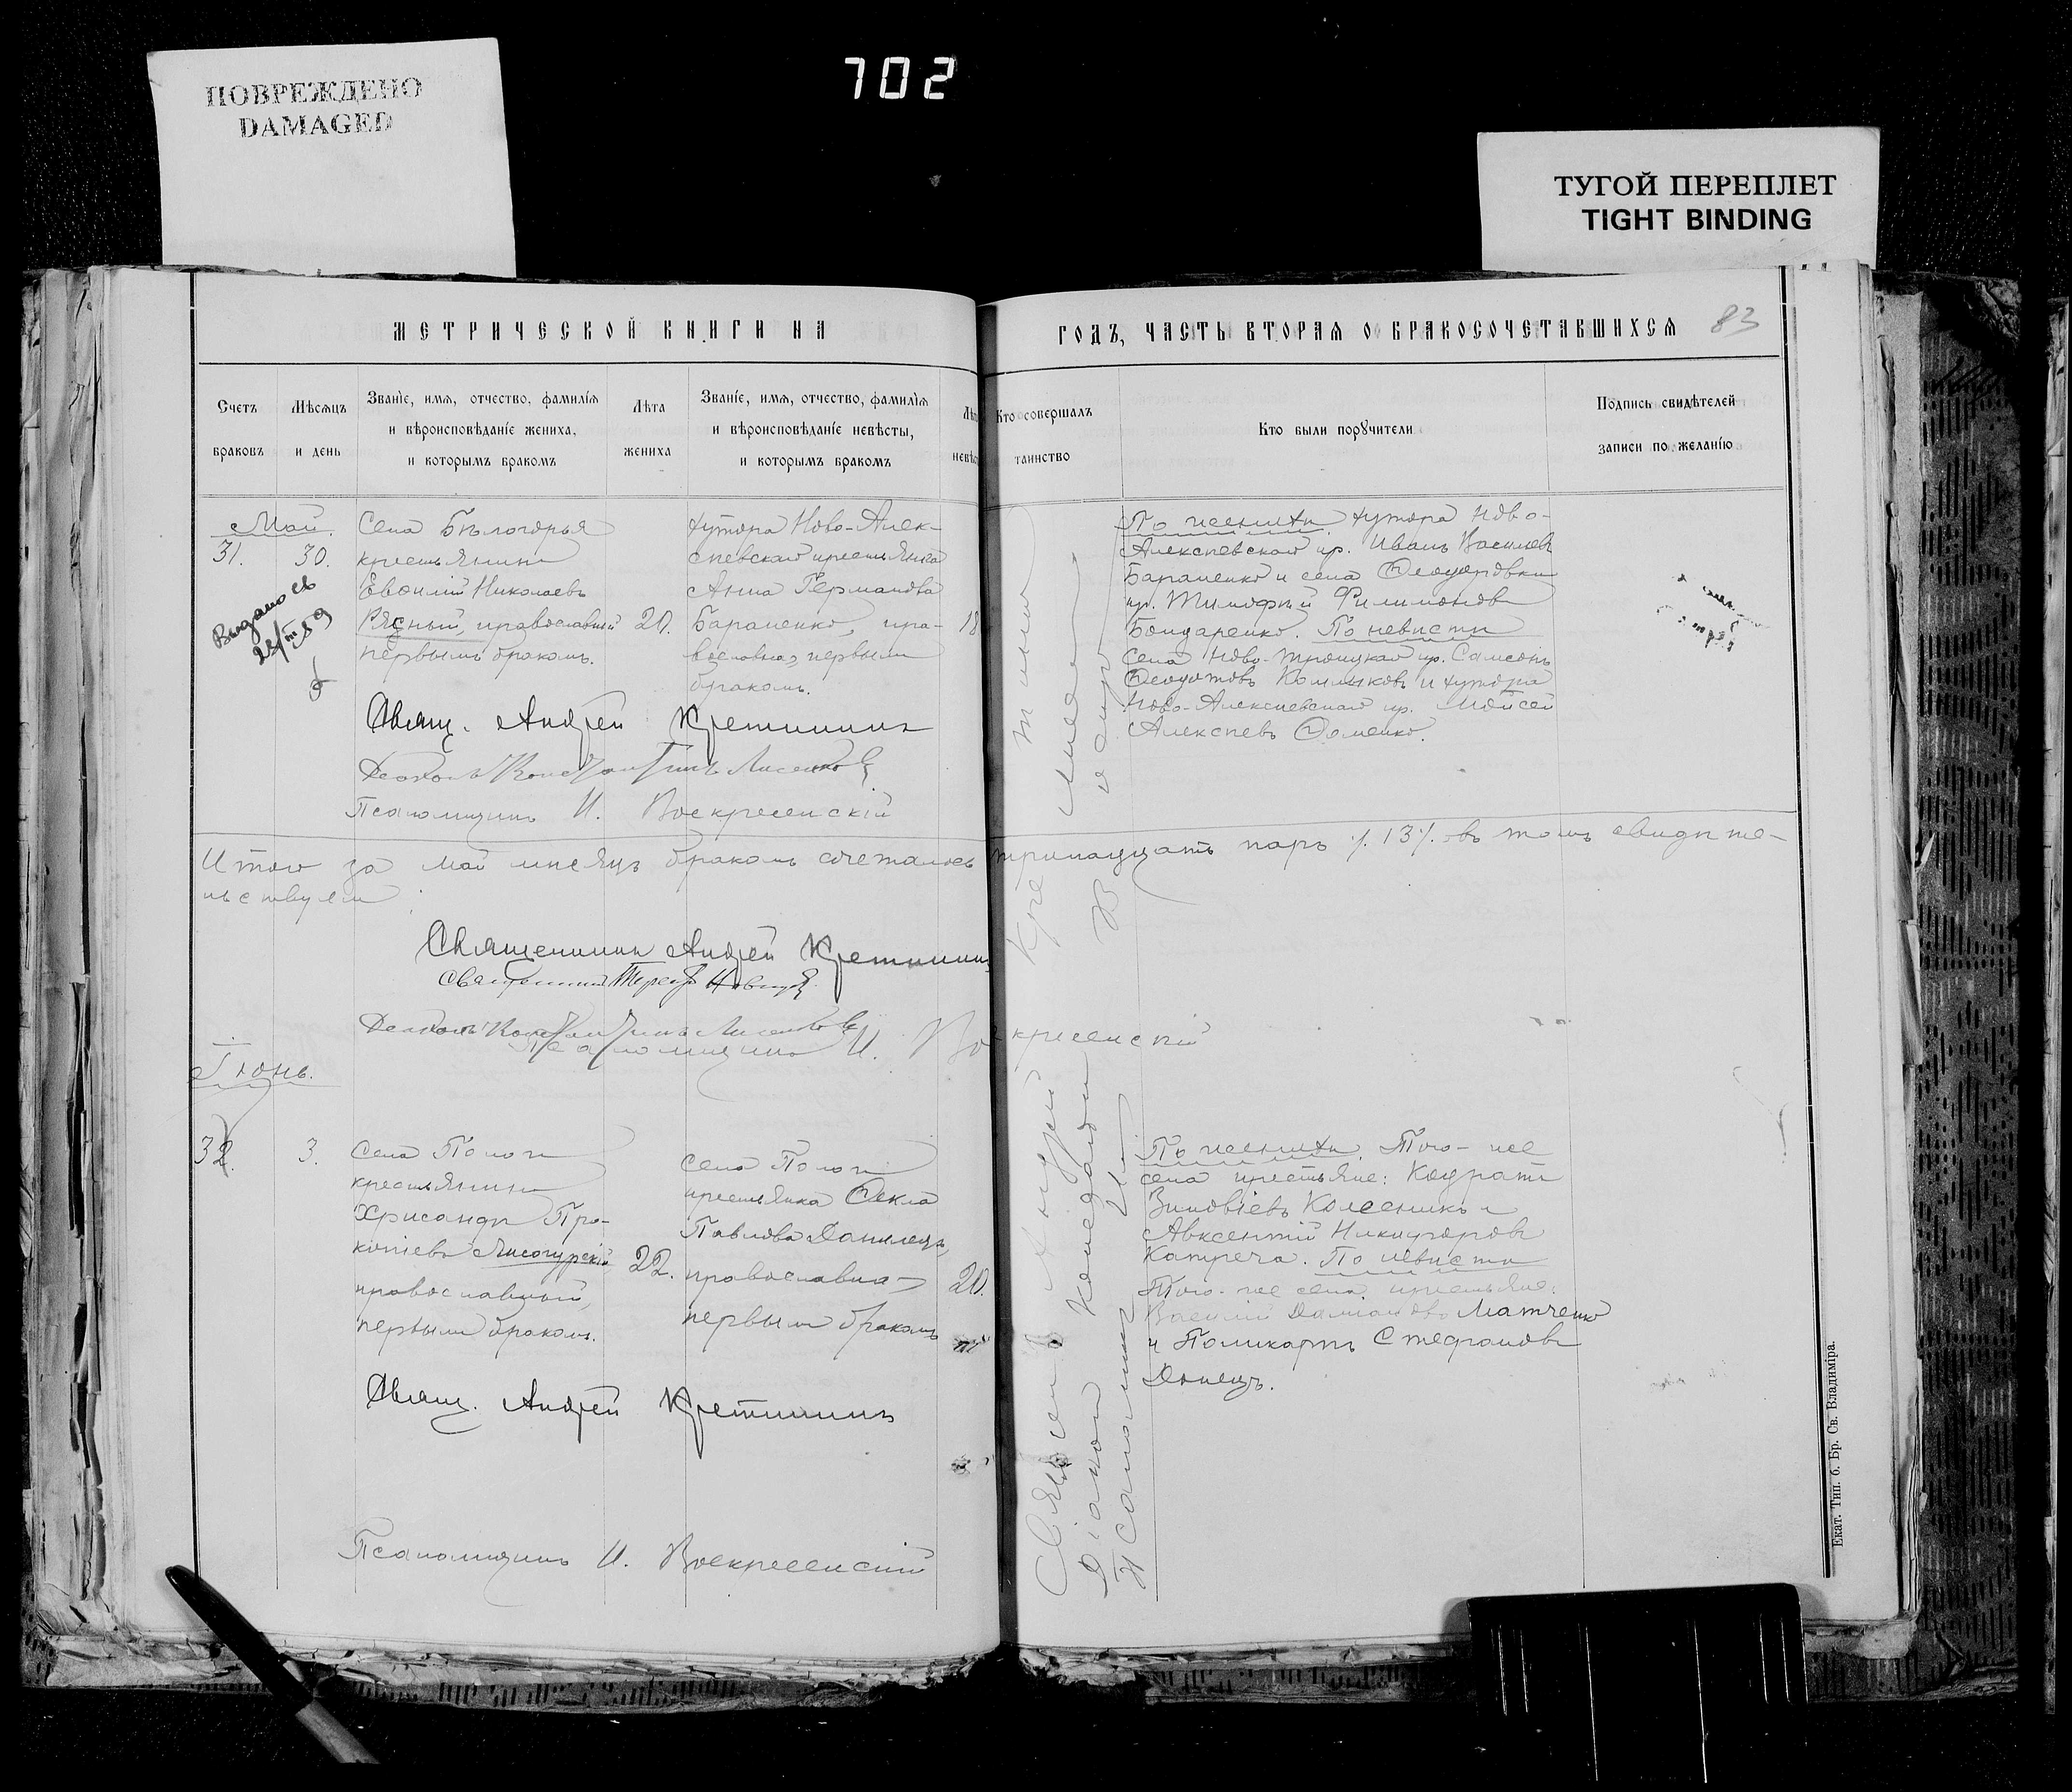 702
ПОВРЕЖДЕНО
DAMAGED
ТУГОЙ ПЕРЕПЛЕТ
TIGHT BINDING
МЕТРИЧЕСКОЙ КНИГИ НА
ГОДЪ, ЧАСТЬ ВТОРАЯ О БРАКОСОЧЕТАВШИХСЯ
83
Счетъ браковъ
Мѣсяцъ и день
Званіе, имя, отчество, фамилія
и вѣроисповѣданіе жениха,
и которымъ бракомъ
Лѣта жениха
Званіе, имя, отчество, фамилія
и вѣроисповѣданіе невѣсты,
и которымъ бракомъ
Кто совершалъ таинство
Кто были поручители
Подпись свидѣтелей
записи по желанію
Май.
31. 30.
Выдано св
Села Бѣлогорья
крестьянинъ
Евѳимій Николаевъ
Рясный, православный
первымъ бракомъ.
20.
хутора Ново-Алек-
сѣевскаго крестьянка
Анна Германова
Бараненко, пра-
вославная, первымъ
бракомъ.
18
По женихѣ хутора Ново-
Алексѣевскаго кр. Иванъ Васильевъ
Бараненко и села Ѳеодоровки
кр. Тимофей Филимоновъ
Бондаренко. По невѣстѣ
села Ново-Троицкаго кр. Самсонъ
Ѳедотовъ Колпыковъ и хутора
Ново-Алексѣевскаго кр. Мойсей
Алексѣевъ Ѳоменко.
Свящ. Андрей Кретининъ
Діаконъ Константинъ Лисенковъ
Псаломщикъ И. Воскресенскій
Итого за май мѣсяцъ бракомъ сочеталось тринадцать паръ /. 13 /. въ томъ свидѣте-
льствуемъ
Священникъ Андрей Кретининъ
Священникъ
Діаконъ Константинъ Лисенковъ
Псаломщикъ И. Воскресенскій
Іюнь.
32. 3.
Села Пологи
крестьянинъ
Хрисанфъ Про-
копіевъ Лисогурскій
православный,
первымъ бракомъ.
22.
села Пологи
крестьянка Ѳекла
Павлова Данилецъ,
православная,
первымъ бракомъ
20.
По женихѣ. Того-же
села крестьяне: Кодратъ
Зиновіевъ Колесникъ и
Авксентій Никифоровъ
Катреча. По невѣстѣ
Того-же села крестьяне:
Василій Даміановъ Матченко
и Поликарпъ Стефановъ
Донецъ.
Свящ. Андрей Кретининъ
Псаломщикъ И. Воскресенскій
Священ Андрей Кре
Діаконъ
Псаломщ
Екат. Тип. б. Бр. Св. Владиміра.